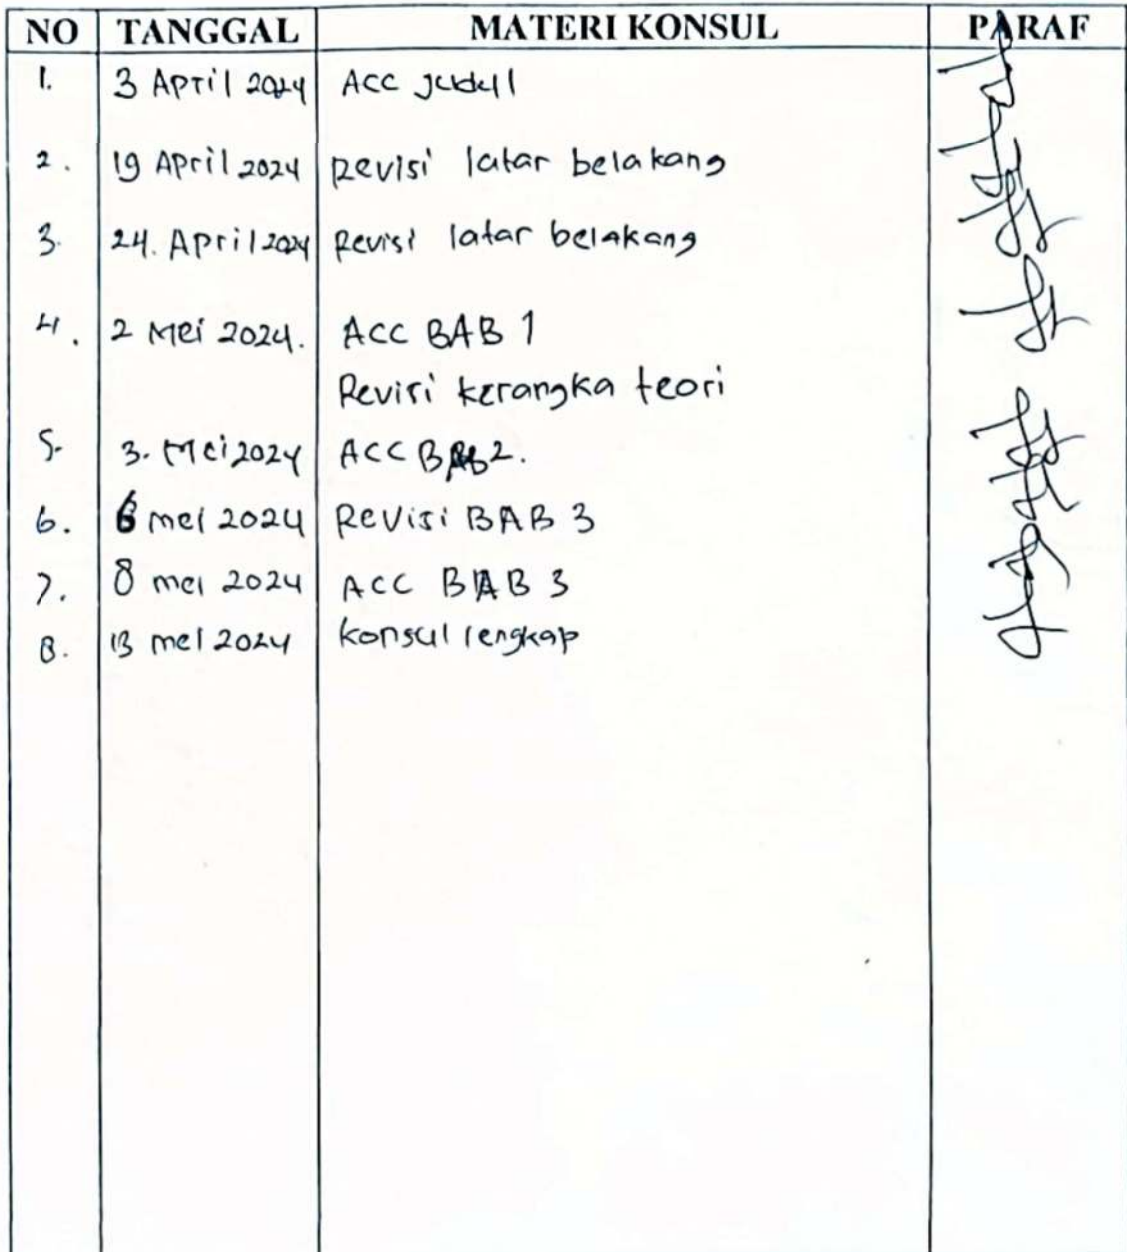 NO TANGGAL MATERI KONSUL PARAF
1. 3 April 2024 ACC Judul
2. 19 April 2024 Revisi latar belakang
3. 24. April 2024 Revisi latar belakang
4. 2 Mei 2024. ACC BAB 1
Revisi kerangka teori
5. 3. Mei 2024 ACC BAB 2.
6. 6 mei 2024 Revisi BAB 3
7. 8 mei 2024 ACC BAB 3
8. 13 mei 2024 konsul lengkap